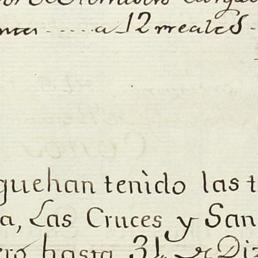 a 12 rreales.
que han tenido las t
a, Las Cruces y San
ero hasta 31, de Diz